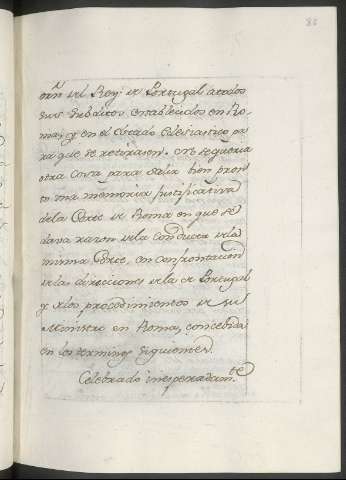 82
orn del Rey de Portugal atodos
sus Subditos establecidos en Ro-
ma, y en el Estado Eclesiastico pa
ra que se retirasen. No se queria
otra Cosa para salir bien pron
to una memoria Justificativa
dela Corte de Roma en que se
dava razon dela Conducta dela
misma Corte, con confrontacion
dela direcciones dela de Portugal
y delos procedimientos de su
Ministro en Roma, concevida
en los terminos siguientes.
Celebrado inesperadamte